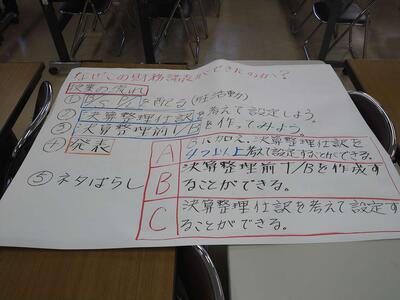 なぜこの財務諸表ができたのか？
授業の流れ
① B/S P/Lを配る(班活動)
② 決算整理仕訳を考えて設定しよう。
③ 決算整理前T/Bを作ってみよう。
④ 発表
⑤ ネタばらし
A Bに加え、決算整理仕訳を
4つ以上考えて設定することができる。
B 決算整理前T/Bを作成す
ることができる。
C 決算整理仕訳を考えて設定す
ることができる。